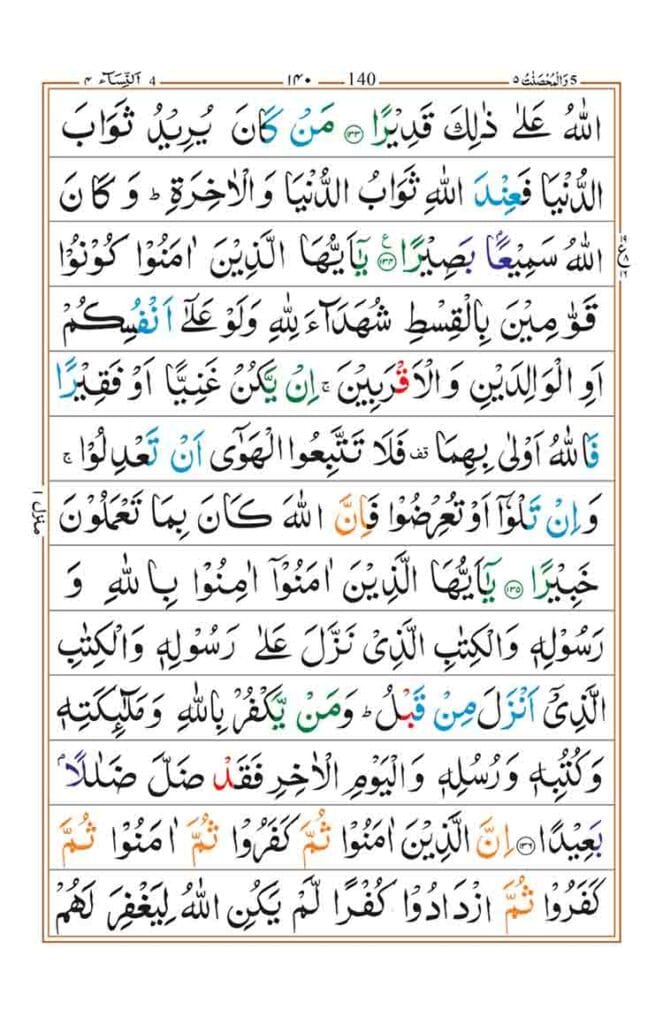 ٥ وَالْمُحْصَنٰتُ 5 140 ١٤٠ 4 اَلنِّسَآء ٤
اللّٰهُ عَلٰى ذٰلِكَ قَدِيْرًا ۝١٣٣ مَنْ كَانَ يُرِيْدُ ثَوَابَ
الدُّنْيَا فَعِنْدَ اللّٰهِ ثَوَابُ الدُّنْيَا وَالْاٰخِرَةِ ؕ وَ كَانَ
اللّٰهُ سَمِيْعًۢا بَصِيْرًا ۝١٣٤ يٰۤاَيُّهَا الَّذِيْنَ اٰمَنُوْا كُوْنُوْا
قَوّٰمِيْنَ بِالْقِسْطِ شُهَدَآءَ لِلّٰهِ وَلَوْ عَلٰۤى اَنْفُسِكُمْ
اَوِ الْوَالِدَيْنِ وَالْاَقْرَبِيْنَ ۚ اِنْ يَّكُنْ غَنِيًّا اَوْ فَقِيْرًا
فَاللّٰهُ اَوْلٰى بِهِمَا قف فَلَا تَتَّبِعُوا الْهَوٰٓى اَنْ تَعْدِلُوْا ۚ
وَاِنْ تَلْوٗۤا اَوْ تُعْرِضُوْا فَاِنَّ اللّٰهَ كَانَ بِمَا تَعْمَلُوْنَ
خَبِيْرًا ۝١٣٥ يٰۤاَيُّهَا الَّذِيْنَ اٰمَنُوْۤا اٰمِنُوْا بِاللّٰهِ وَ
رَسُوْلِهٖ وَالْكِتٰبِ الَّذِىْ نَزَّلَ عَلٰى رَسُوْلِهٖ وَالْكِتٰبِ
الَّذِىْۤ اَنْزَلَ مِنْ قَبْلُ ؕ وَمَنْ يَّكْفُرْ بِاللّٰهِ وَمَلٰٓئِكَتِهٖ
وَكُتُبِهٖ وَرُسُلِهٖ وَالْيَوْمِ الْاٰخِرِ فَقَدْ ضَلَّ ضَلٰلًاۢ
بَعِيْدًا ۝١٣٦ اِنَّ الَّذِيْنَ اٰمَنُوْا ثُمَّ كَفَرُوْا ثُمَّ اٰمَنُوْا ثُمَّ
كَفَرُوْا ثُمَّ ازْدَادُوْا كُفْرًا لَّمْ يَكُنِ اللّٰهُ لِيَغْفِرَ لَهُمْ
منزل ١